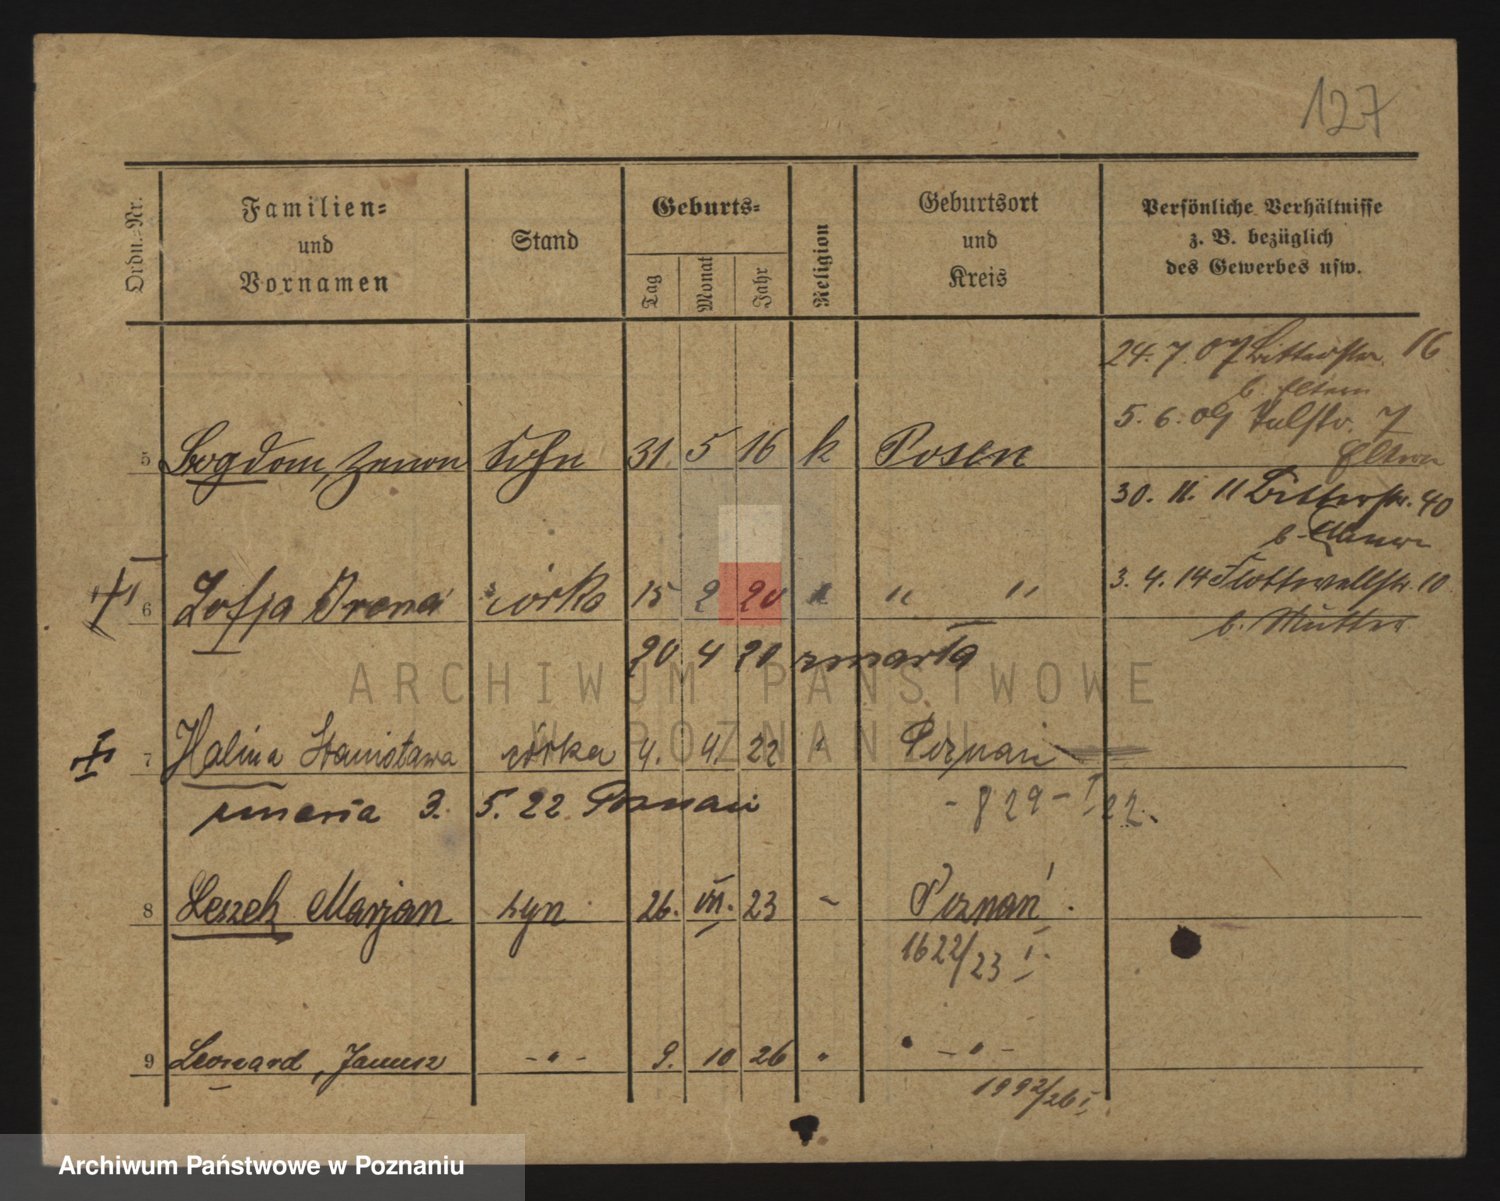 127
Ordn.-Nr.
Familien-
und
Vornamen
Stand
Geburts-
Tag
Monat
Jahr
Religion
Geburtsort
und
Kreis
Persönliche Verhältnisse
z. B. bezüglich
des Gewerbes usw.
24. 7. 07 Bitterstr. 16
b. Eltern
5. 6. 09 Talstr. 7
Eltern
5 Bogdan, Zenon Sohn 31. 5 16 k Posen
30. 11. 11 Bitterstr. 40
b.
3. 4. 14 Flottwellstr. 10
b. Mutter
6 Zofja Irena córka 15 2 20 " " "
20 4 20 zmarła
ARCHIWUM PAŃSTWOWE
W POZNANIU
7 Halina Stanisława córka 4. 4. 22 " Poznań
zmarła 3. 5. 22 Poznań - 829 - I 22.
8 Leszek Marjan syn 26. VII. 23 - Poznań.
1622/23 I.
9 Leonard, Janusz - " - 9. 10 26 " - " -
1992/26 I.
Archiwum Państwowe w Poznaniu